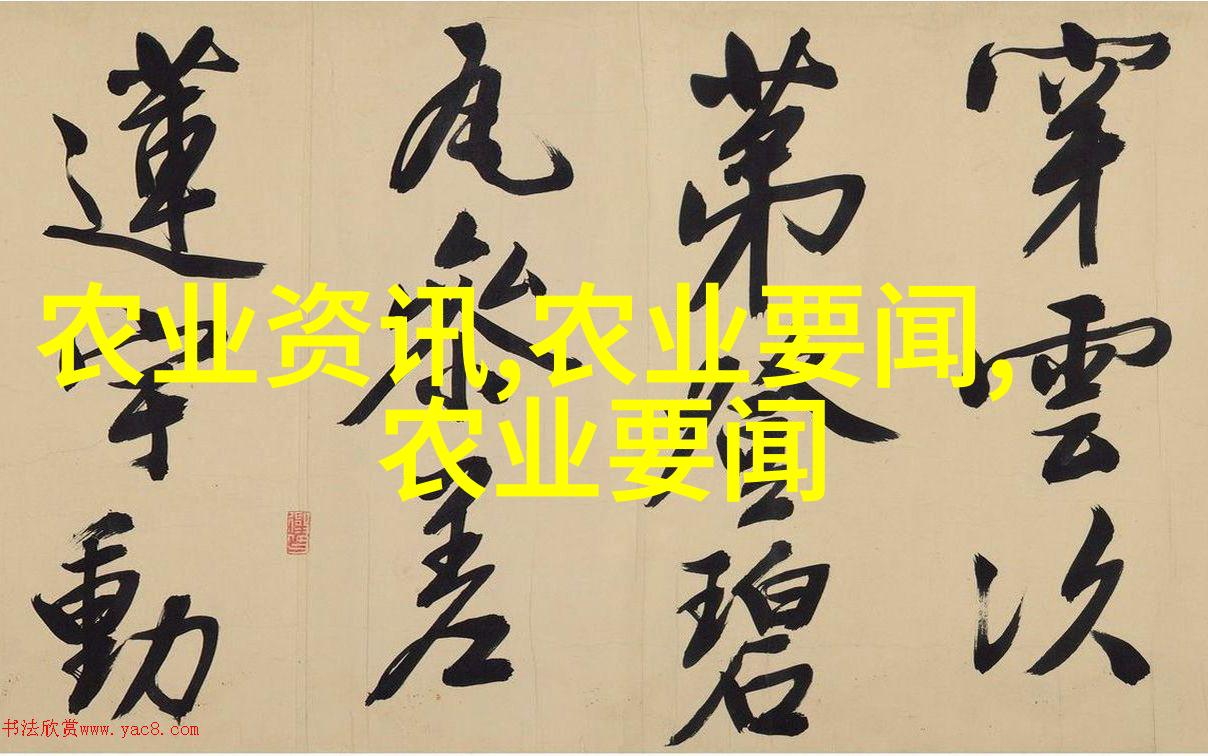 穿雲次
第碧
瓦參差
蓮動
农业资讯,农业要闻,
农业要闻
书法欣赏www.yac8.com